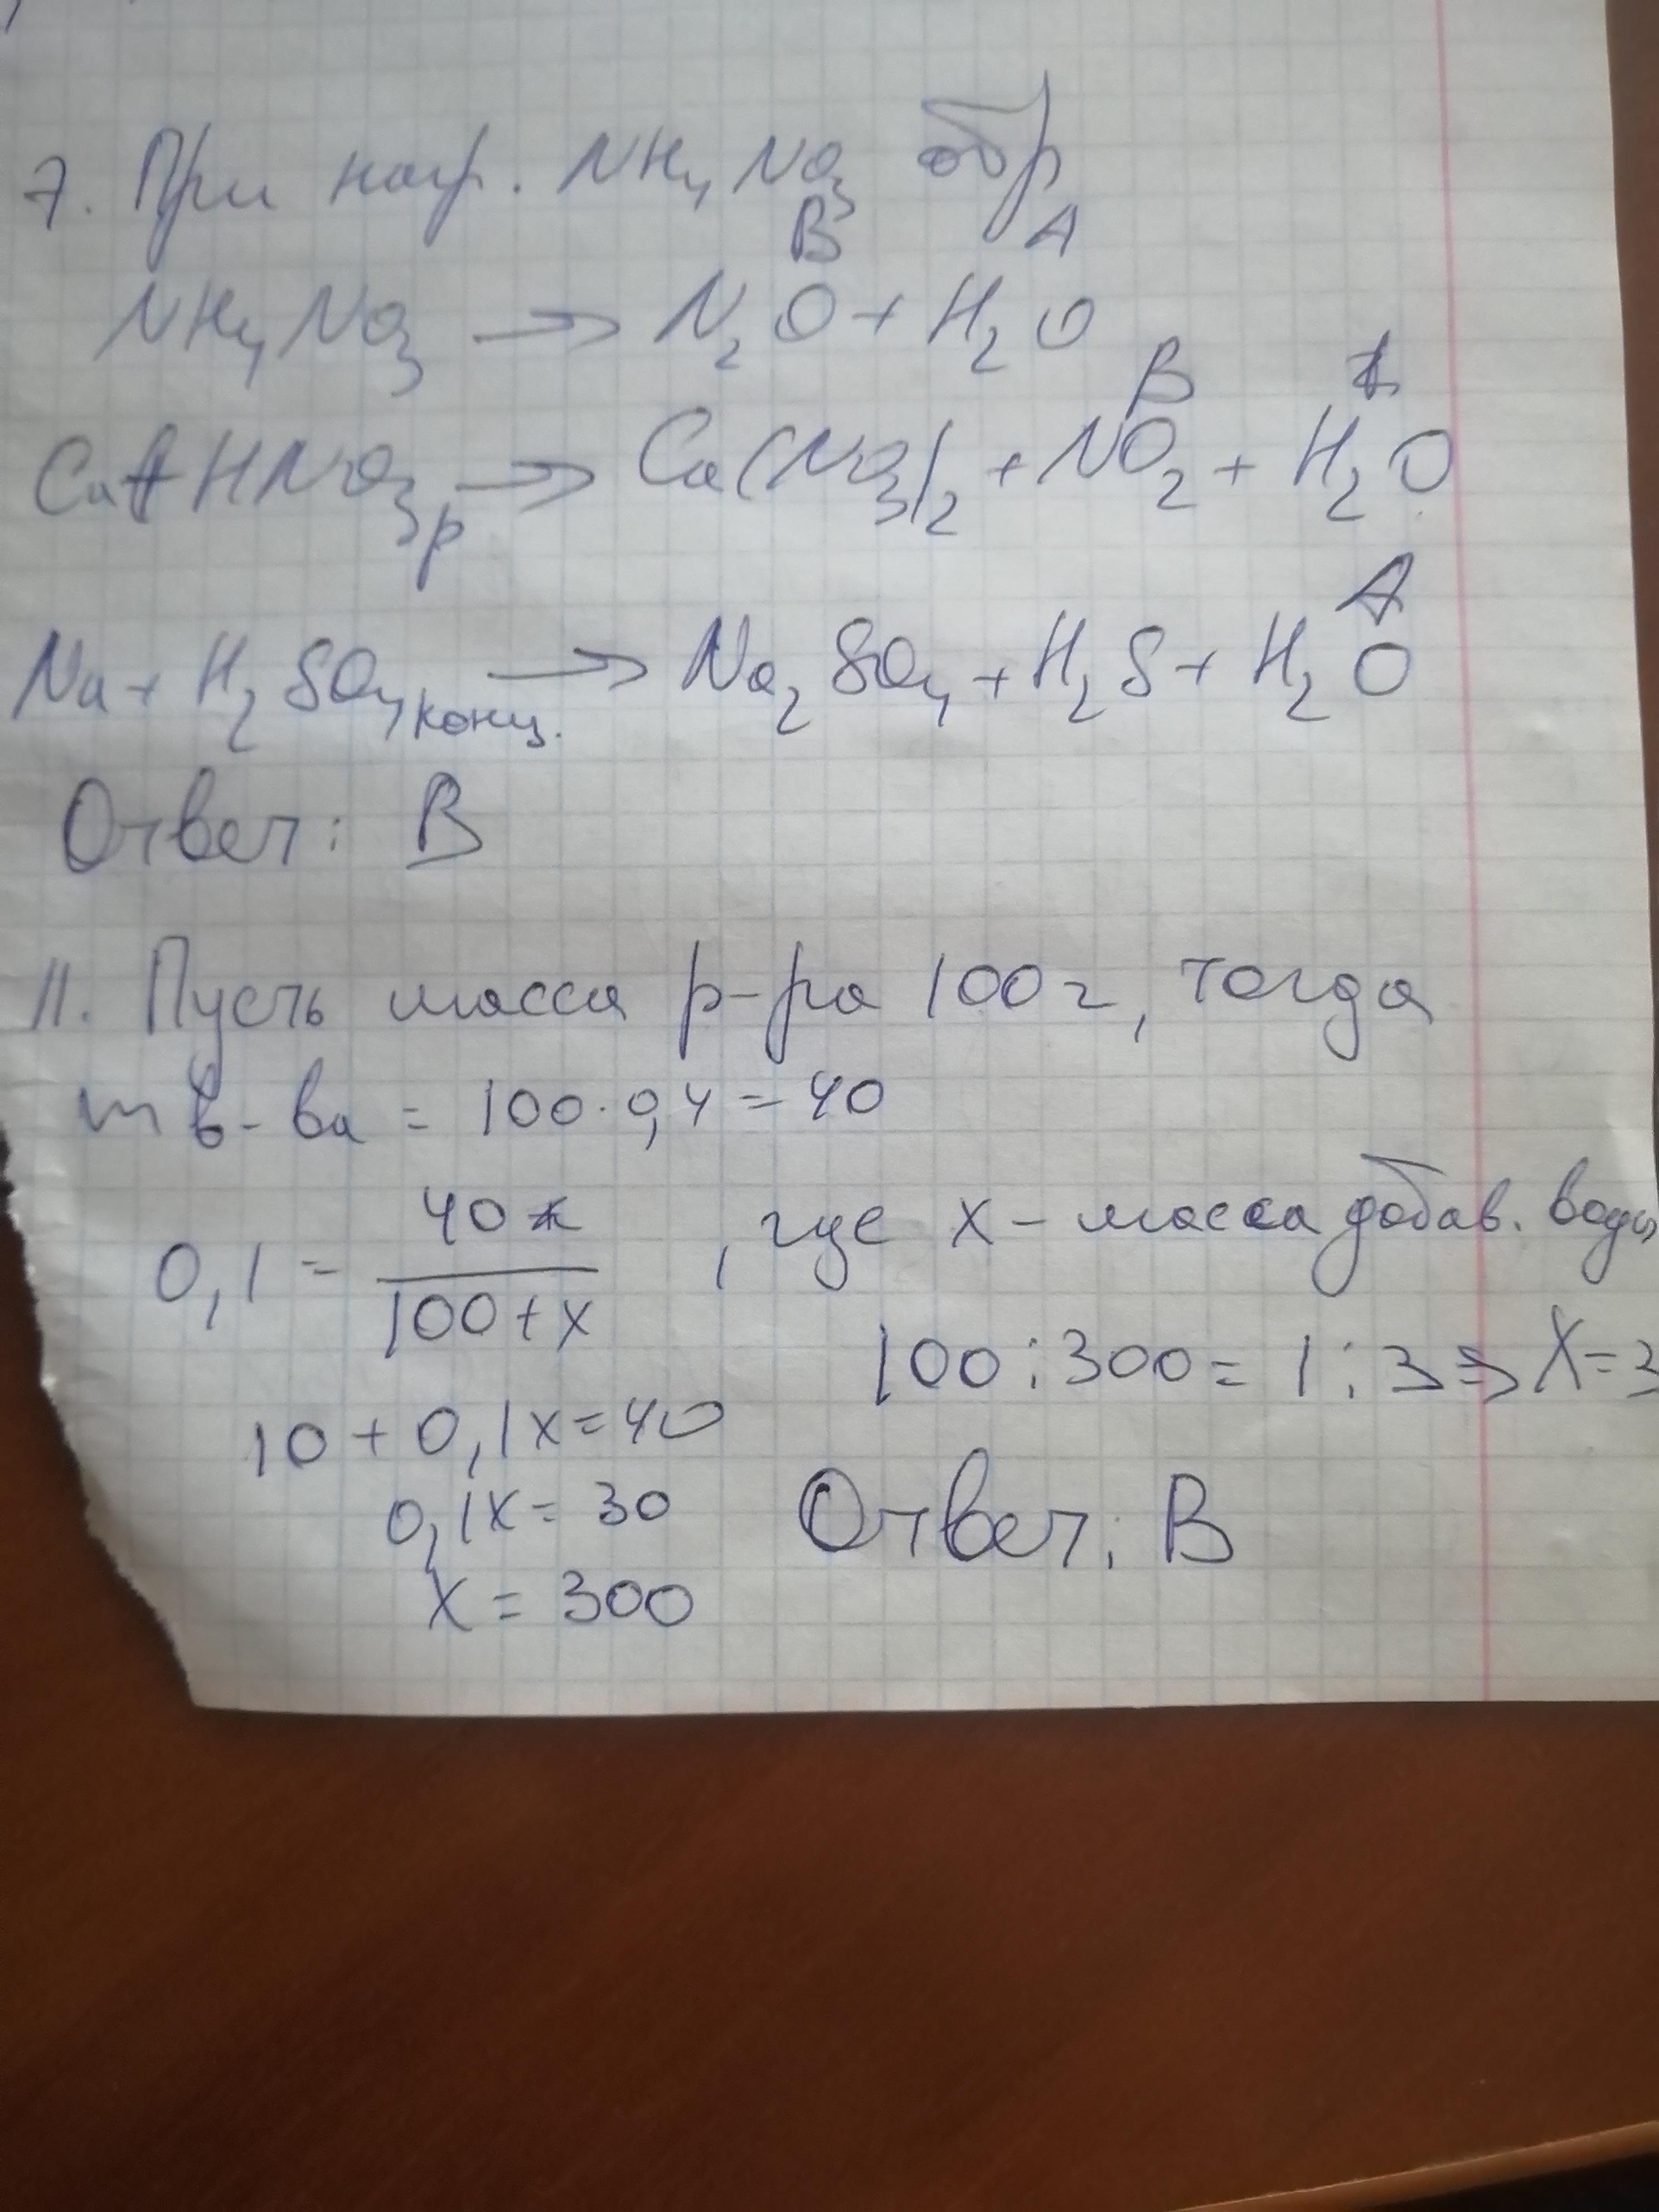 7. При нагр. NH₄NO₃ обр
B A
NH₄NO₃ → N₂O + H₂O
B
Cu + HNO₃ р → Cu(NO₃)₂ + NO₂ + H₂O
A
Na + H₂SO₄ конц. → Na₂SO₄ + H₂S + H₂O
Ответ: B
11. Пусть масса р-ра 100г, тогда
m в-ва = 100·0,4 = 40
0,1 = 40 / (100+x) , где x – масса добав. воды
100:300 = 1:3 ⇒ X = 3
10 + 0,1x = 40
0,1x = 30 Ответ: B
x = 300